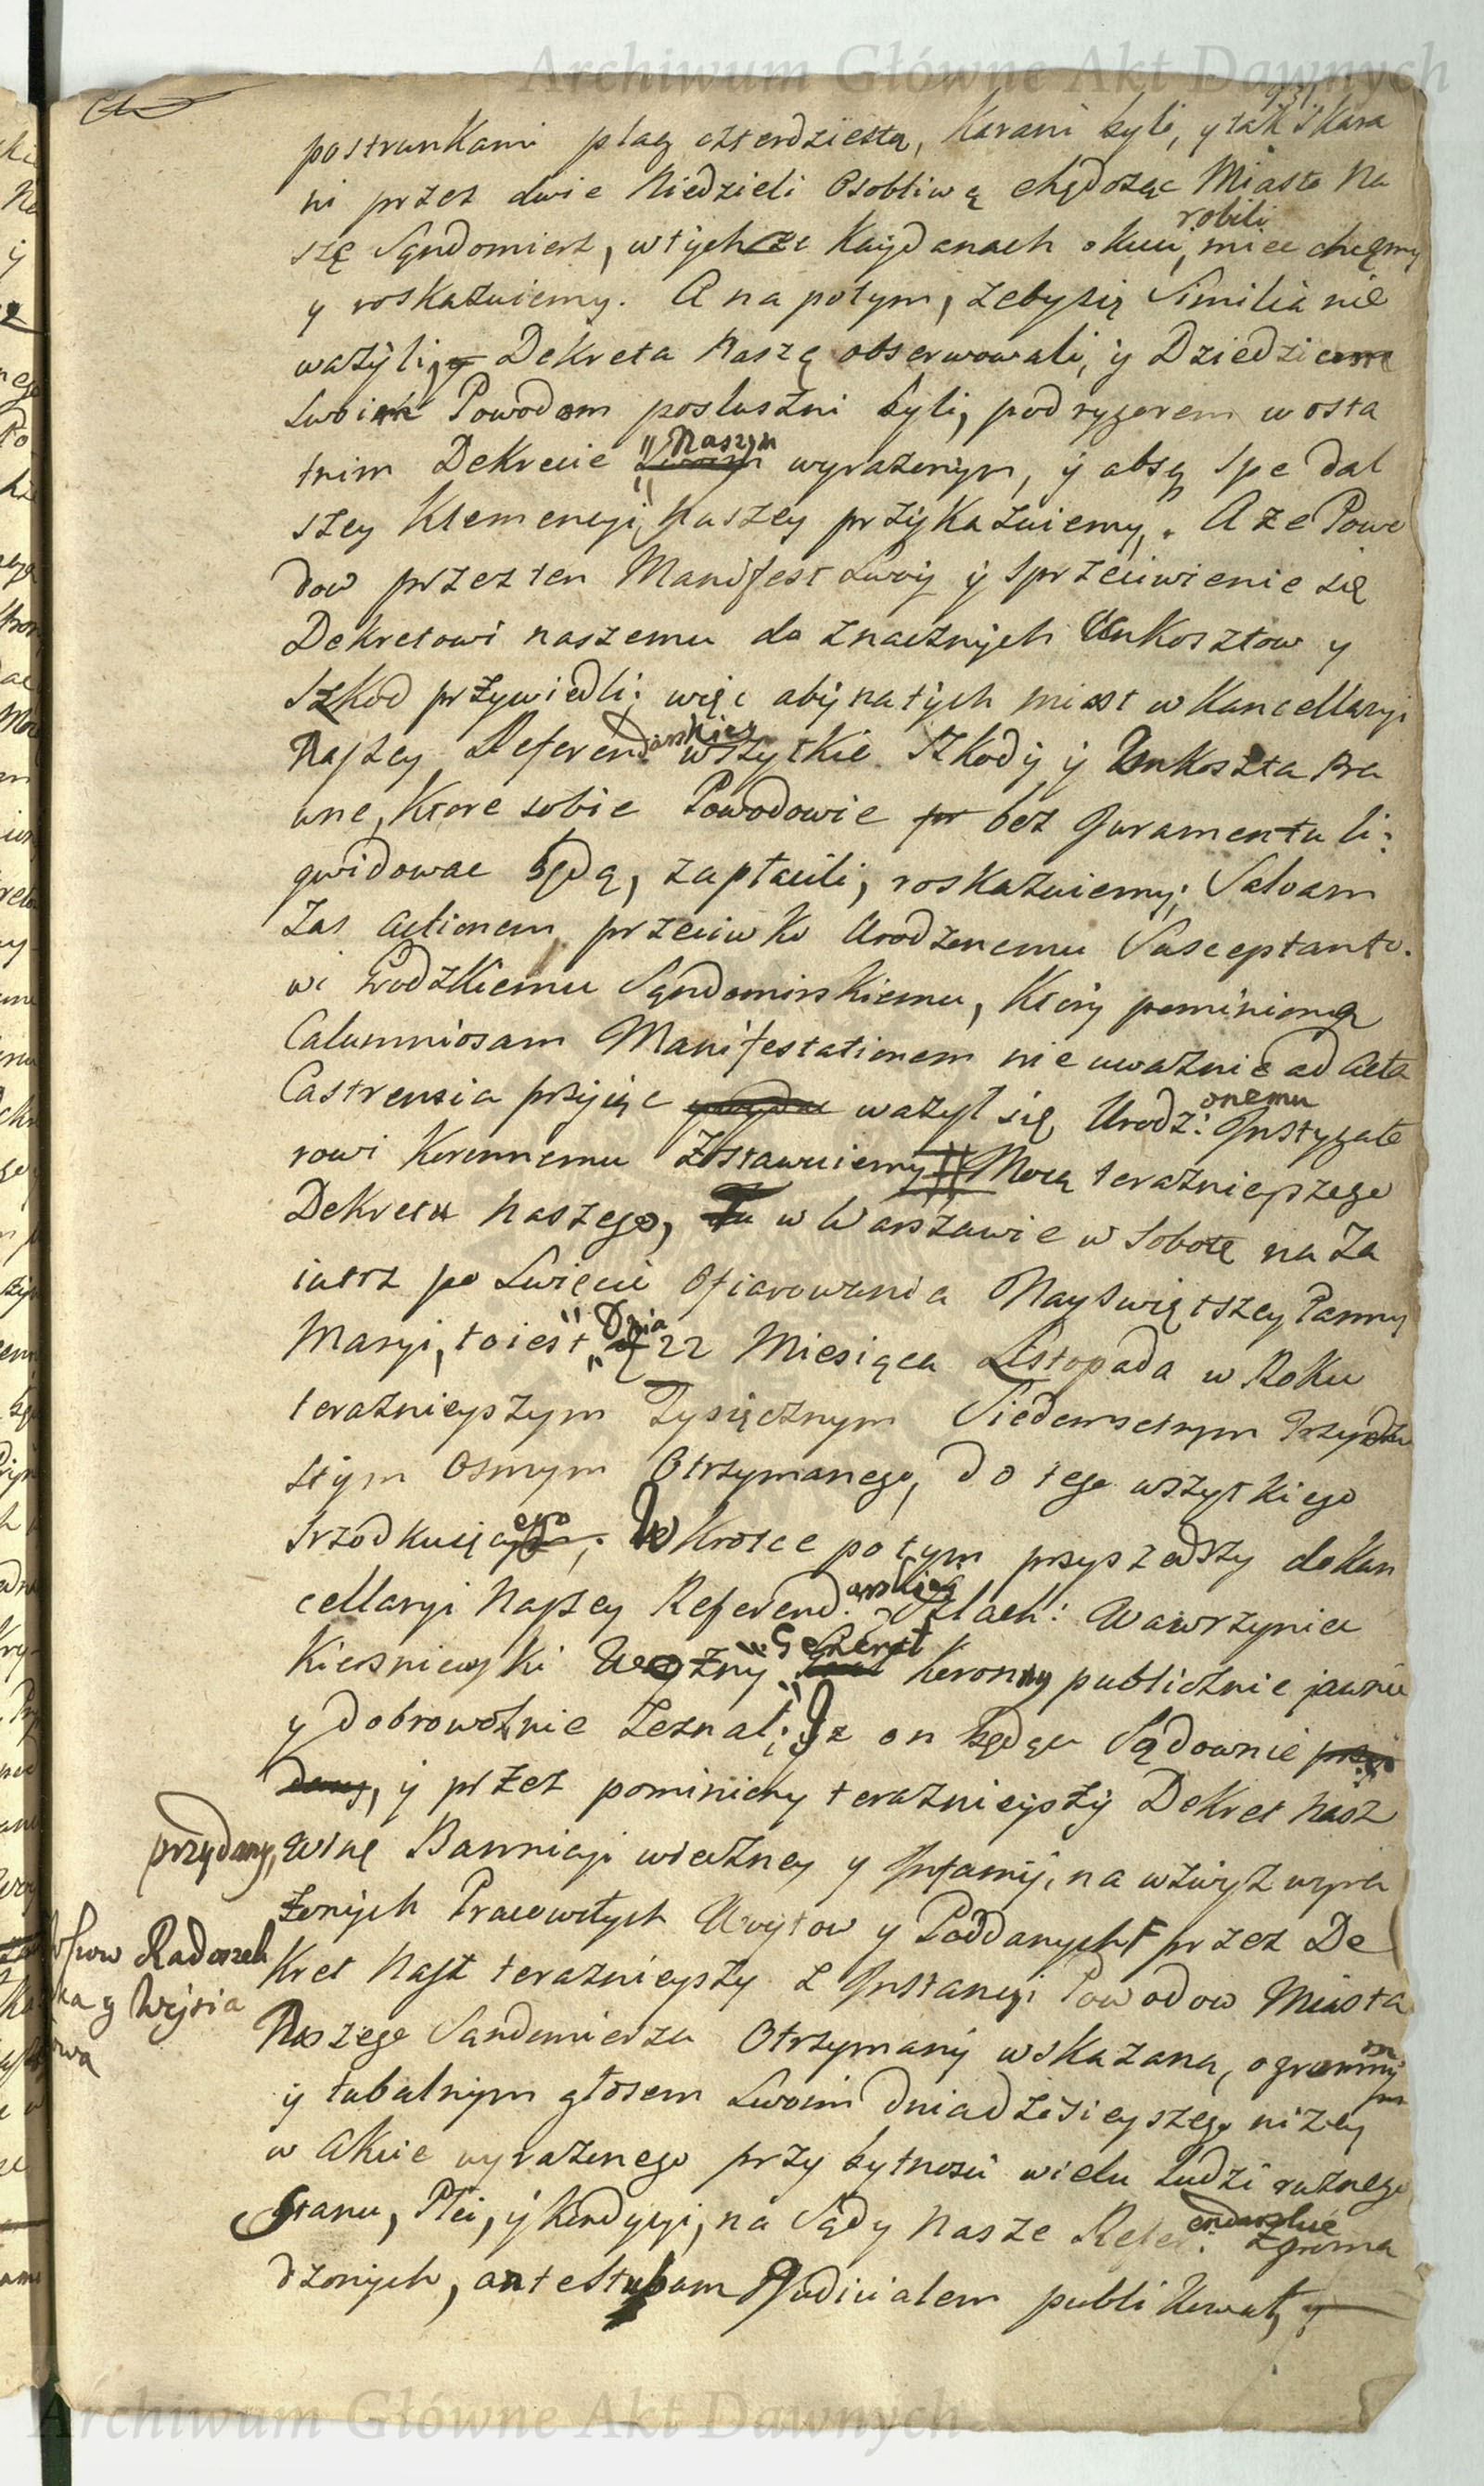 Archiwum Główne Akt Dawnych
postrunkami plag czterdziestą, Karani byli, y tak skara
ni przez dwie Niedzieli Osobliwą chędożąc Miasto Na
robili
szę Sędomierz, w tych że Kaydanach okuci, miec chcęmy
y roskazuiemy. A na potym, żeby się Similia nie
ważyli, y Dekreta Naszę obserwowali, ÿ Dziedzicom
swoim Powodom posłuszni byli, pod rygorem w osta
Naszym
tnim Dekrecie wyrażonym, ÿ absq Spe dal
szey Klemencyi Naszey przÿkazuiemy. A ze Powo
dow przez ten Manifest swoÿ ÿ sprzeciwienie się
Dekretowi naszemu do znacznÿch Unkosztow y
szkod przywiedli; więc abÿ natÿch miast w Kancellaryi
arskiey
Naszey Referend wszytkie szkodÿ ÿ Unkoszta Pra
wne, Ktore sobie Powodowie pr bez Juramentu li:
qwidowac będą, zapłacili, roskazuiemy; Salvam
zas actionem przeciwko Urodzonemu Susceptanto.
wi Grodzkiemu Sędomirskiemu, Ktorÿ pominioną
Calumniosam Manifestationem nie uważnie ad Acta
onemu
Castrensia przÿiąc ważył się, Urodz: Instygato
rowi Koronnemu Zostawuiemy Mocą teraznieyszego
Dekretu Naszego, Tu w Warszawie w Sobotę na Za
iutrz po Swięcie Ofiarowania Nayswiętszey Panny
Dnia
Maryi, to iest d 22 Miesiąca Listopada w Roku
teraznieyszym Tysiącznym Siedemsetnym Trzydzie
stÿm Osmym Otrzymanego, do tego wszytkiego
ego
srzodkuiąc; Wkrotce potym przyszedszy do Kan
arskiey
cellaryi Naszey Referend. Szlach: Wawrzyniec
Generał
Kiersniewski Wozny Koronny publicznie jawnie
y dobrowolnie Zeznał; Iz on będąc Sądownie przy
dany, ÿ przez pominiony teraznieÿszÿ Dekret Nasz
przydany,
Winę Bannicyi wieczney y Infamij, na wzwÿż wyra
żonÿch Pracowitych Woytow y Poddanych przez De
Radoszek
kret Nasz teraznieyszy z Instancyi Powodow Miasta
y Wojsia
Naszego Sandomierza Otrzymanÿ wskazaną, ogromnym
ÿ tubalnym głosem swoim dnia dzisieyszego niżey
w Akcie wyrażonego przy bytnosci wielu Ludzi rożnego
Stanu, Płci, ÿ Kondycyi, na Sądy Nasze Refer:
endarskie
zgroma
dzonÿch, ante Stubam Judicialem publikował, y
Archiwum Główne Akt Dawnych